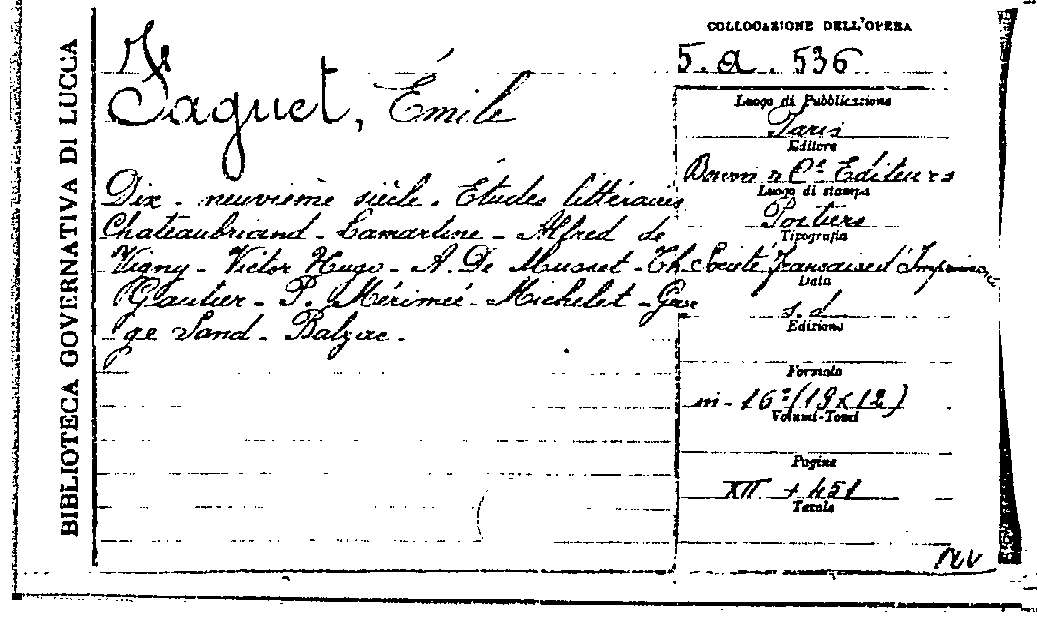 BIBLIOTECA GOVERNATIVA DI LUCCA
Faguet, Émile
Dix-neuvième siècle. Études littéraires
Chateaubriand - Lamartine - Alfred de
Vigny - Victor Hugo - A. De Musset - Th.
Gautier - P. Mérimée - Michelet - Geor
ge Sand - Balzac.
COLLOCAZIONE DELL'OPERA
5. a. 536
Luogo di Pubblicazione
Paris
Editore
Boivin & C.ie Editeurs
Luogo di stampa
Poitiers
Tipografia
Societé française d'Imprimerie
Data
s. d.
Edizione
Formato
in-16° (19x12)
Volumi-Tomi
Pagine
XII + 451
Tavole